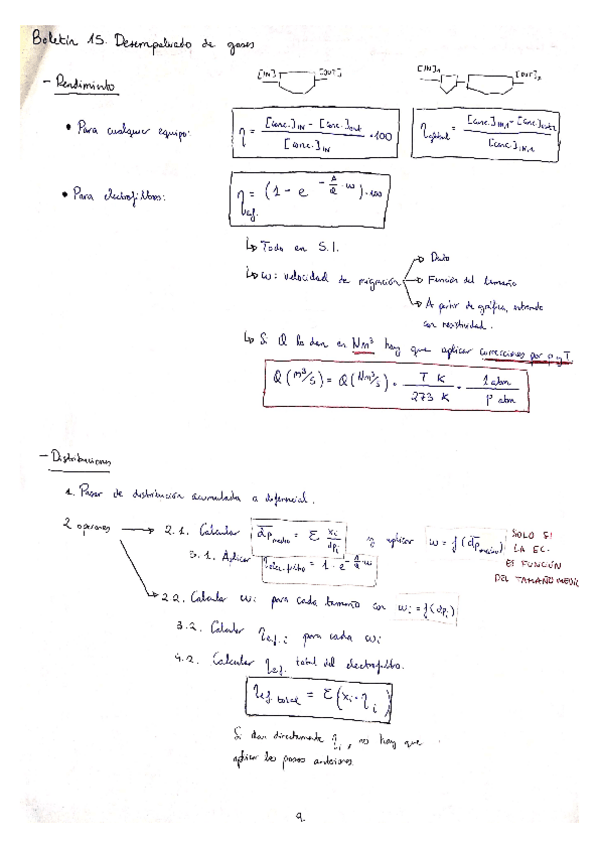 Boletín 15. Desempolvado de gases
[IN] [OUT] [IN]₁ [OUT]₂
- Rendimiento
• Para cualquier equipo: η = ([conc.]IN - [conc.]out / [conc.]IN) · 100
η global = [conc.]IN,1 - [conc.]out,2 / [conc.]IN,1
• Para electrofiltros: η ef. = (1 - e^(-A/Q · w)) · 100
↳ Todo en S.I.
↳ w: velocidad de migración
→ Dato
→ Función del tamaño
→ A partir de gráfica, entrando con resistividad.
↳ Si Q la dan en Nm³ hay que aplicar correcciones por p y T.
Q (m³/s) = Q (Nm³/s) · T K / 273 K · 1 atm / P atm
- Distribuciones
1. Pasar de distribución acumulada a diferencial.
2 opciones → 2.1. Calcular dp medio = Σ xi / dpi y aplicar w = f(dp medio)
SOLO SI
LA EC.
ES FUNCIÓN
DEL TAMAÑO MEDIO
3.1. Aplicar η elec. filtro = 1 - e^(-A/Q w)
→ 2.2. Calcular wi para cada tamaño con wi = f(dpi)
3.2. Calcular η ef. i para cada wi
4.2. Calcular η ef. total del electrofiltro.
η ef total = Σ (xi · ηi)
Si dan directamente ηi, no hay que
aplicar los pasos anteriores.
9.